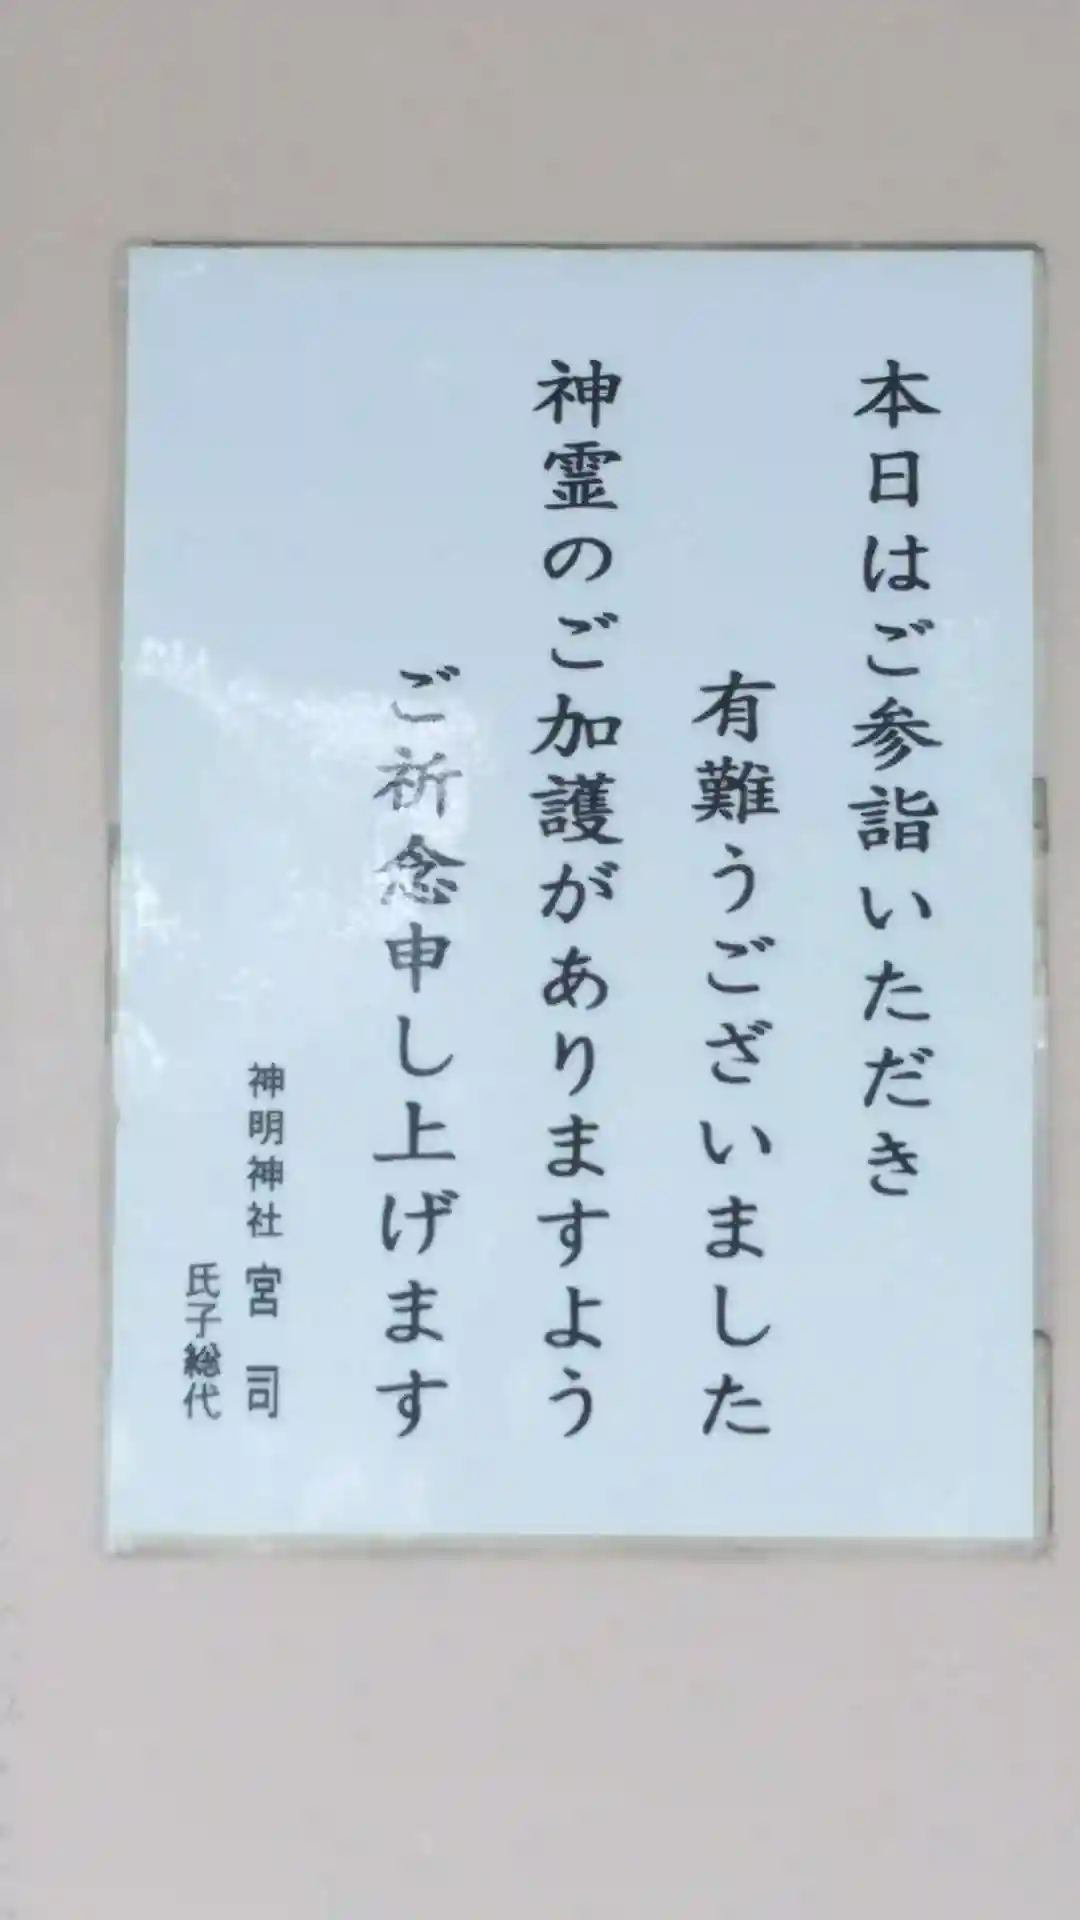 本日はご参詣いただき
有難うございました
神霊のご加護がありますよう
ご祈念申し上げます
神明神社 宮司
氏子総代